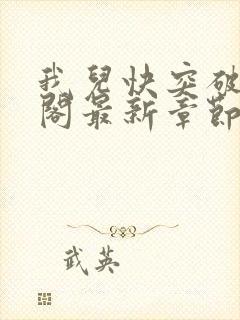 我兒快突破
閣最新章節
武英